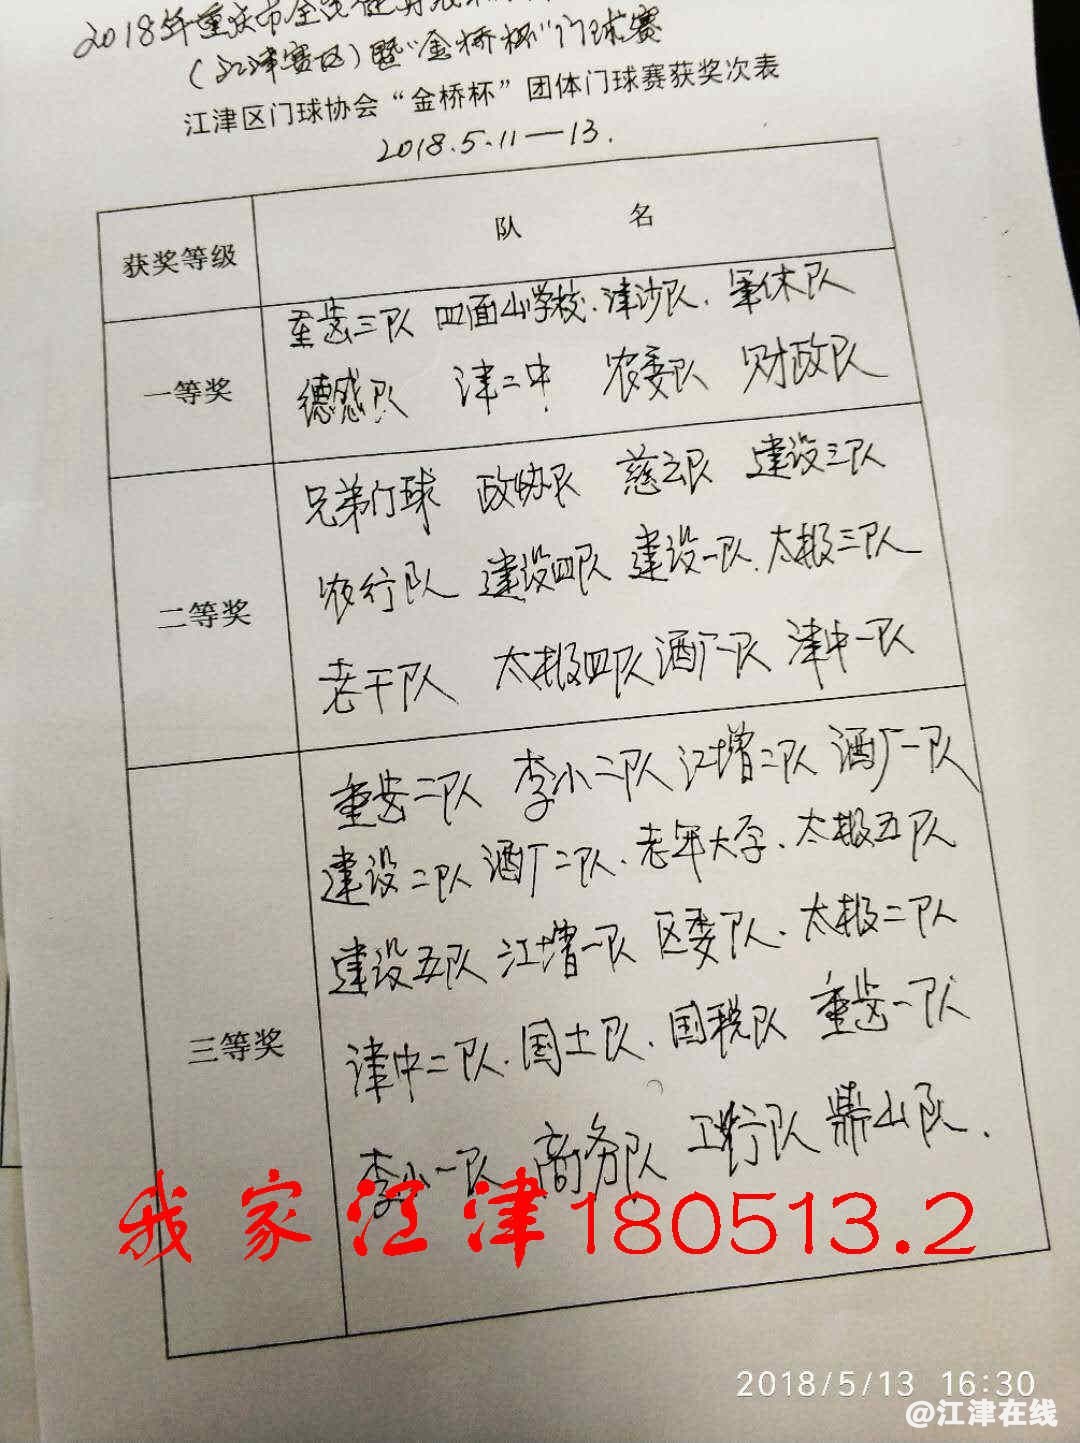 2018年重庆市全民健身
(江津赛区)暨"金桥杯"门球赛
江津区门球协会“金桥杯”团体门球赛获奖次表
2018.5.11—13.
获奖等级 队 名
一等奖
重齿三队 四面山学校.津沙队.军休队
德感队 津二中 农委队 财政队
二等奖
兄弟门球 政协队 慈云队 建设三队
农行队 建设四队 建设一队.太极三队
老干队 太极四队 酒厂一队 津中一队
三等奖
重齿二队 李小二队 江增二队 酒厂一队
建设二队 酒厂二队.老年大学.太极五队
建设五队 江增一队 区委队.太极二队
津中二队.国土队.国税队 重齿一队
李小一队 商务队 工行队 鼎山队.
我家江津180513.2
2018/5/13 16:30
@江津在线